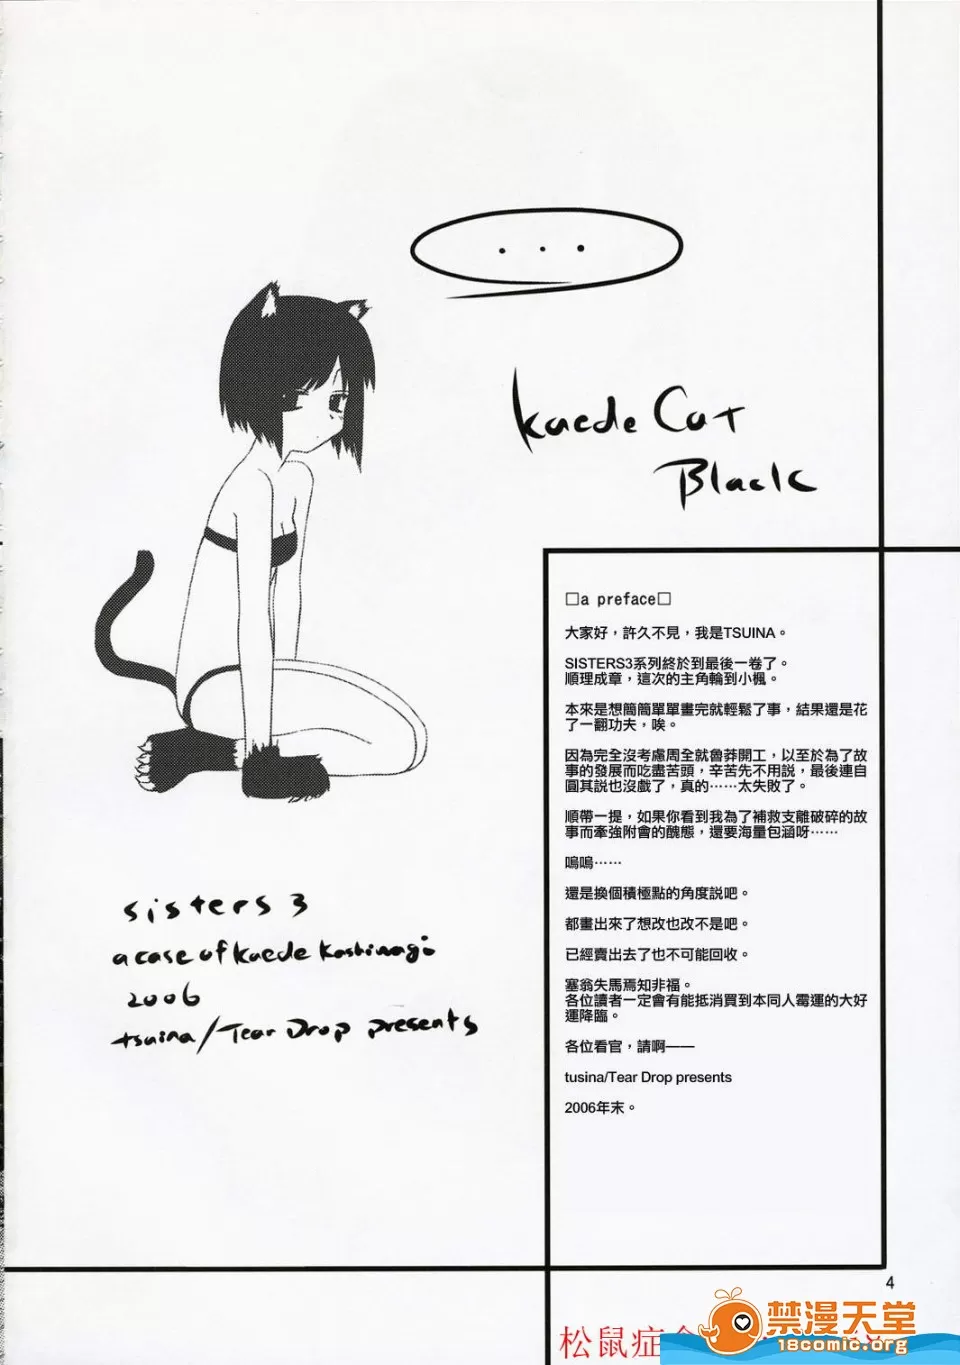 ...
kaede Cat
Black
□a preface□
大家好，許久不見，我是TSUINA。
SISTERS3系列終於到最後一卷了。
順理成章，這次的主角輪到小楓。
本來是想簡簡單單畫完就輕鬆了事，結果還是花
了一翻功夫，唉。
因為完全沒考慮周全就魯莽開工，以至於為了故
事的發展而吃盡苦頭，辛苦先不用說，最後連自
圓其說也沒戲了，真的……太失敗了。
順帶一提，如果你看到我為了補救支離破碎的故
事而牽強附會的醜態，還要海量包涵呀……
嗚嗚……
還是換個積極點的角度說吧。
都畫出來了想改也改不是吧。
已經賣出去了也不可能回收。
塞翁失馬焉知非福。
各位讀者一定會有能抵消買到本同人霉運的大好
運降臨。
各位看官，請啊——
tusina/Tear Drop presents
2006年末。
sisters 3
a case of kaede kashinagi
2006
tsuina/Tear Drop presents
4
松鼠症
禁漫天堂
18comic.org